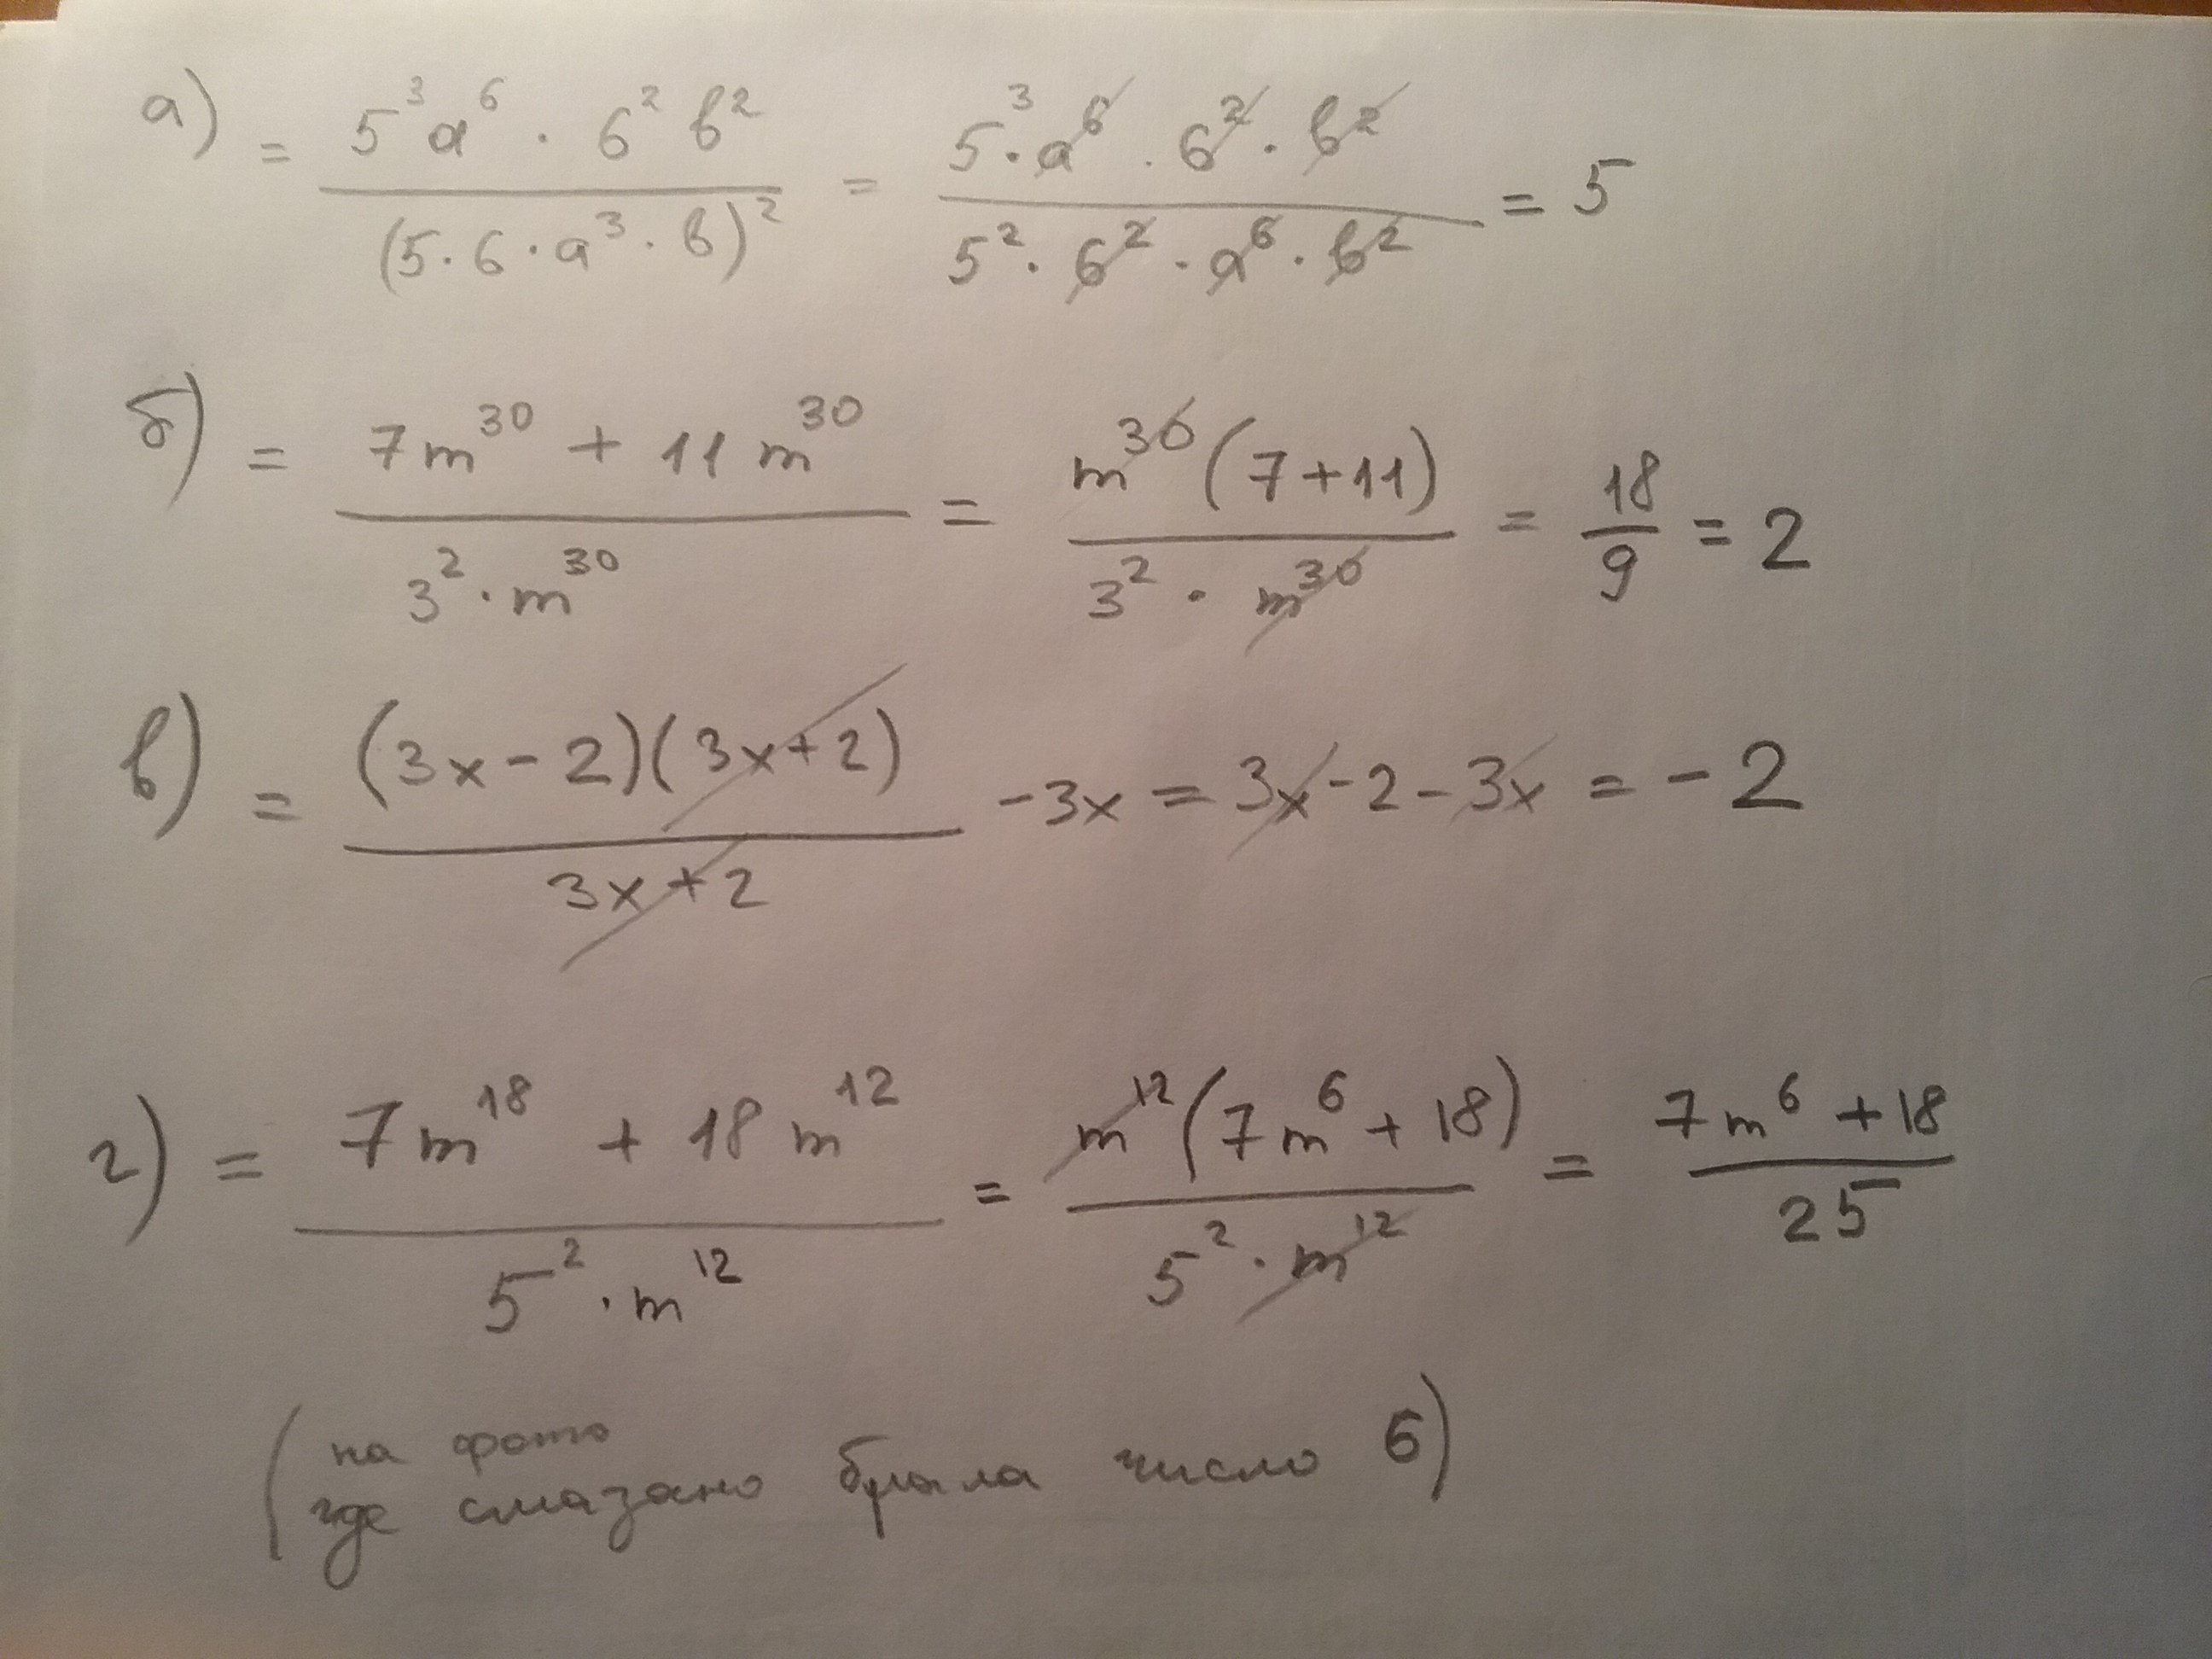 а) = 5³a⁶ · 6² b² / (5·6·a³·b)² = 5³·a⁶·6²·b² / 5²·6²·a⁶·b² = 5
б) = 7m³⁰ + 11m³⁰ / 3²·m³⁰ = m³⁰(7+11) / 3²·m³⁰ = 18/9 = 2
в) = (3x-2)(3x+2) / 3x+2 -3x = 3x-2-3x = -2
г) = 7m¹⁸ + 18m¹² / 5²·m¹² = m¹²(7m⁶+18) / 5²·m¹² = 7m⁶+18 / 25
(на фото
где смазано была число 6)